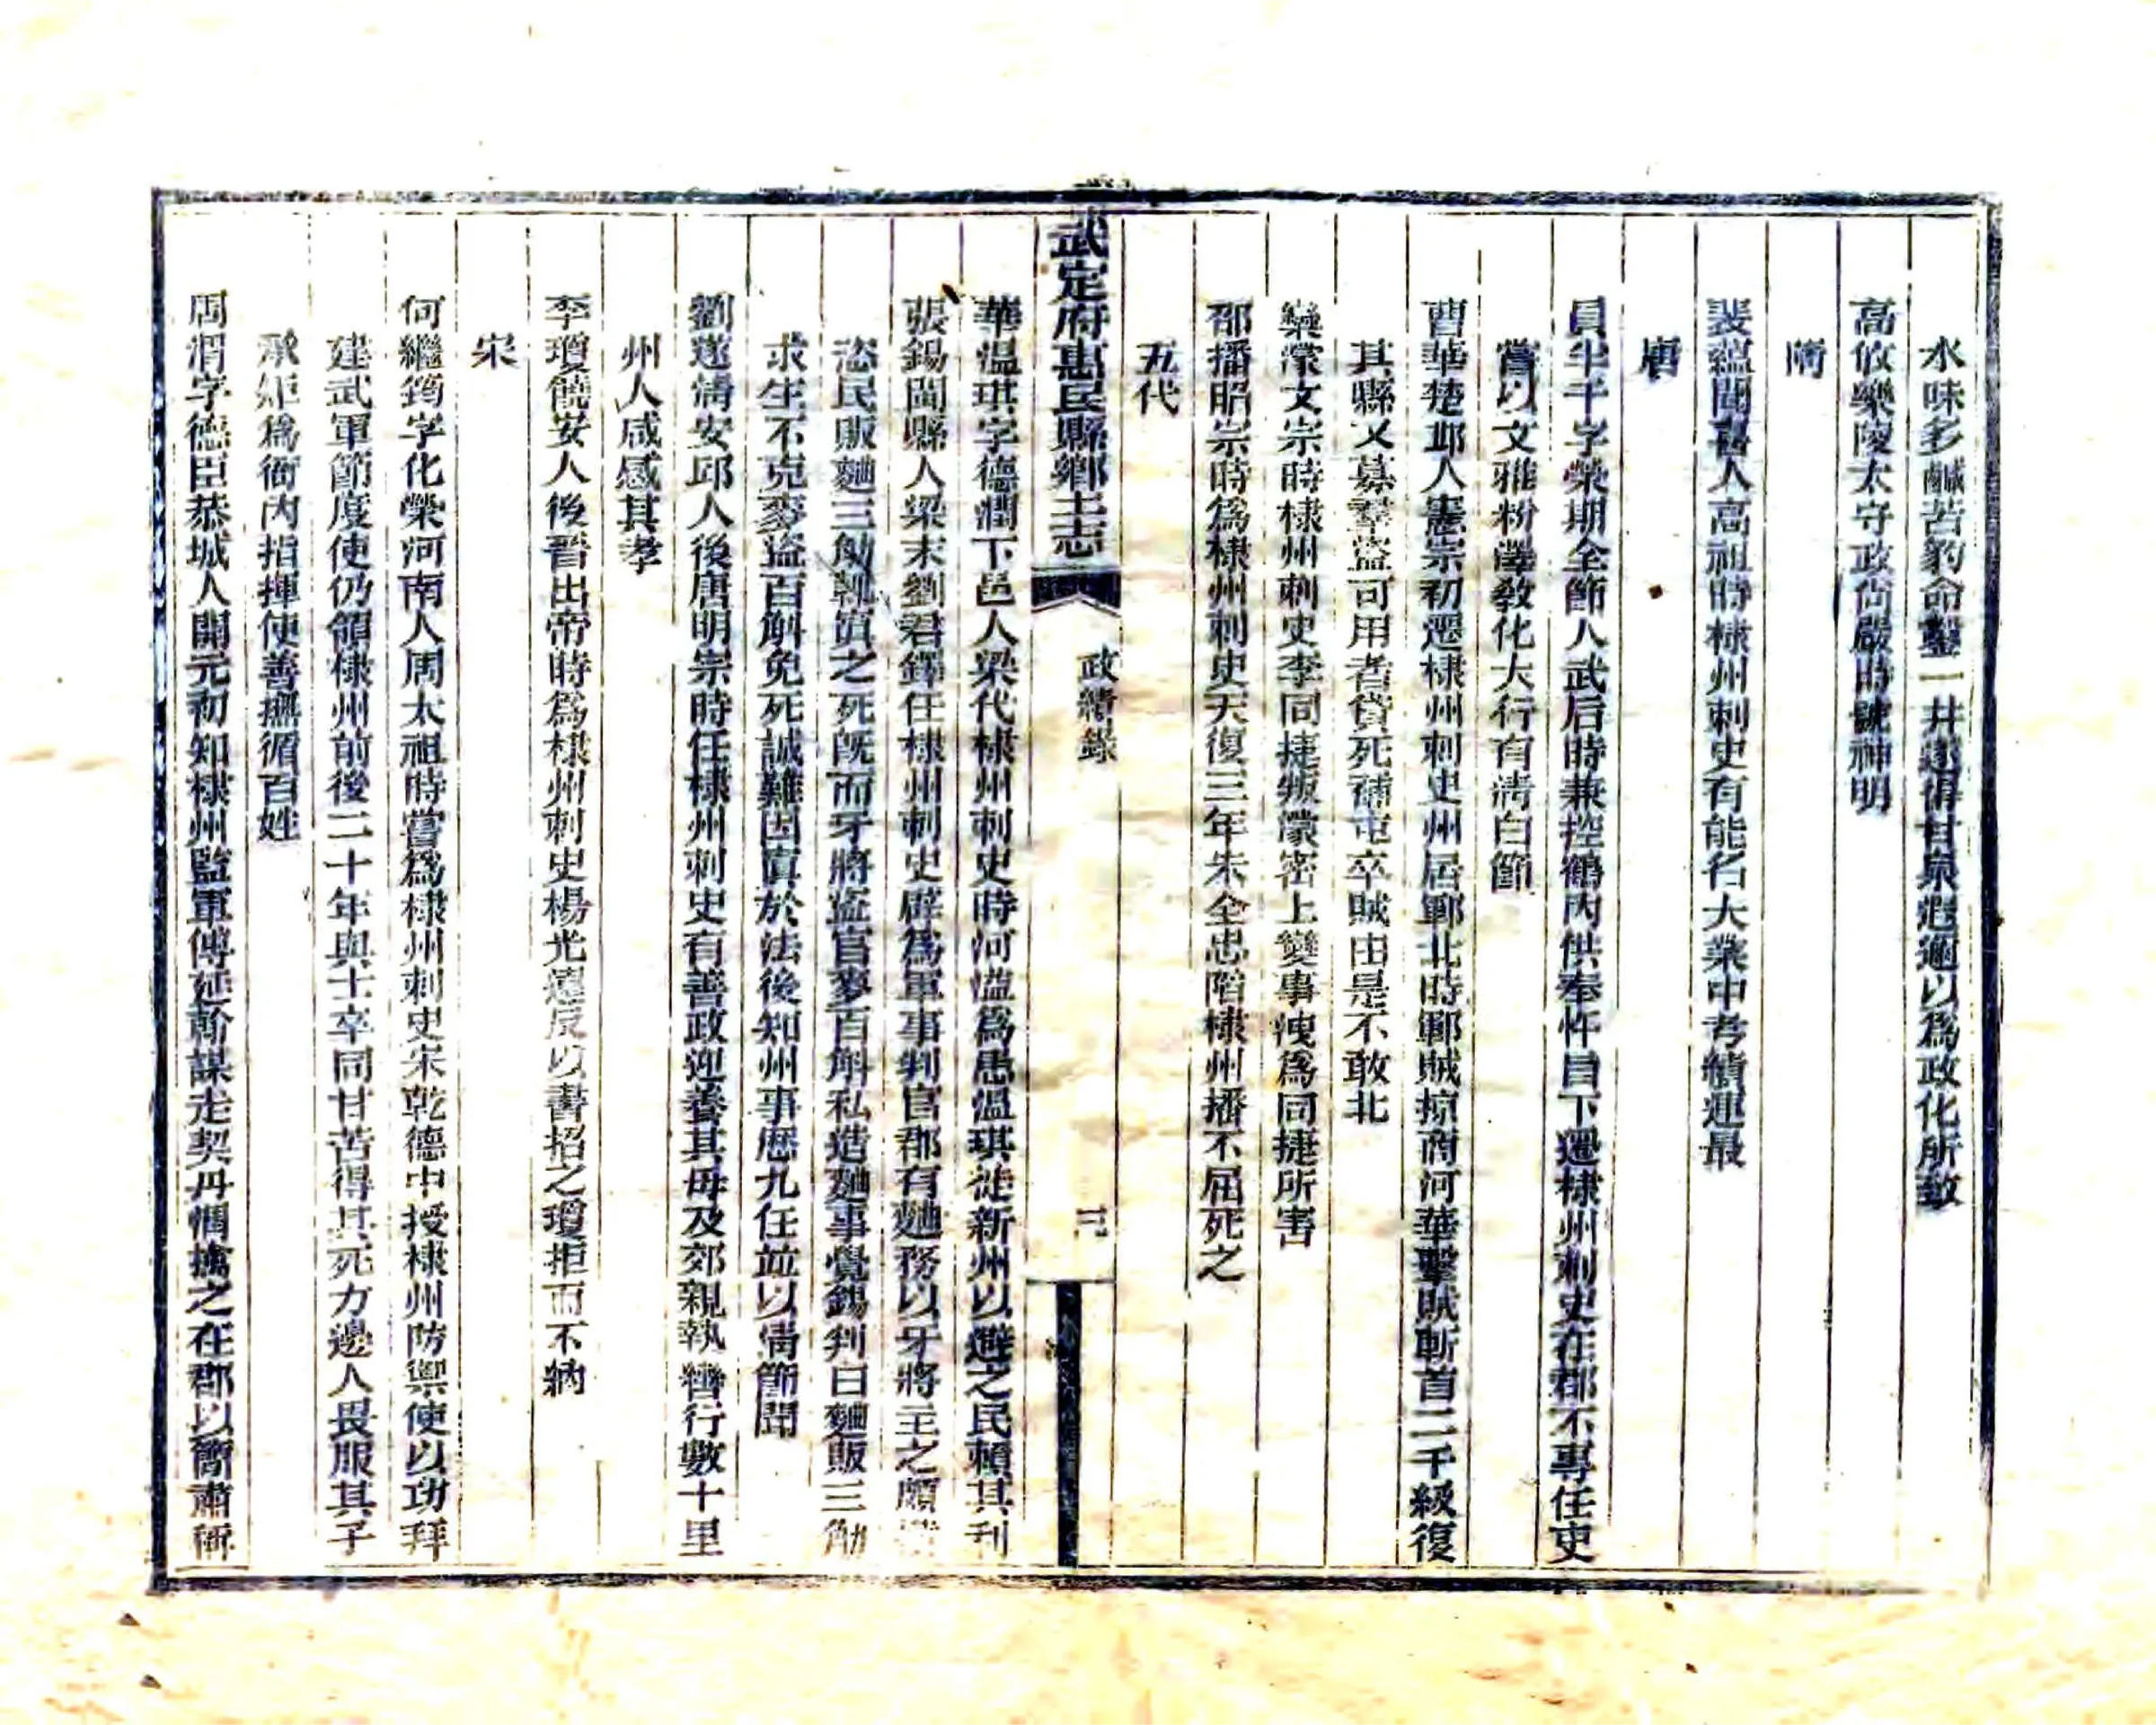 水味多鹹苦豹命鑿一井遂得甘泉遐邇以爲政化所致
高攸樂陵太守政尚嚴時號神明
隋
裴蘊聞喜人高祖時棣州刺史有能名大業中考績連最
唐
員半千字榮期全節人武后時兼控鶴內供奉忤旨下遷棣州刺史在郡不專任吏
嘗以文雅粉澤敎化大行有淸白節
曹華楚邱人憲宗初遷棣州刺史州居鄆北時鄆賊掠商河華擊賊斬首二千級復
其縣又募羣盜可用者貸死補屯卒賊由是不敢北
欒濛文宗時棣州刺史李同捷叛濛密上變事洩爲同捷所害
邵播昭宗時爲棣州刺史天復三年朱全忠陷棣州播不屈死之
五代
武定府惠民縣鄉土志
政績錄
華温琪字德潤下邑人梁代棣州刺史時河溢爲患温琪徙新州以避之民賴其利
張錫閩縣人梁末劉君鐸任棣州刺史辟爲軍事判官郡有麯務以牙將主之頗
恣民販麯三觔輒寘之死旣而牙將盜官麥百斛私造麯事覺錫判曰麯販三觔
求生不克麥盜百斛免死誠難因寘於法後知州事歴九任並以淸節聞
劉遂淸安邱人後唐明宗時任棣州刺史有善政迎養其母及郊親執轡行數十里
州人咸感其孝
李瓊饒安人後晋出帝時爲棣州刺史楊光遠反以書招之瓊拒而不納
宋
何繼筠字化榮河南人周太祖時嘗爲棣州刺史宋乾德中授棣州防禦使以功拜
建武軍節度使仍領棣州前後二十年與士卒同甘苦得其死力邊人畏服其子
承矩爲衙內指揮使善撫循百姓
周渭字德臣恭城人開元初知棣州監軍傅延翰謀走契丹渭擒之在郡以簡肅稱